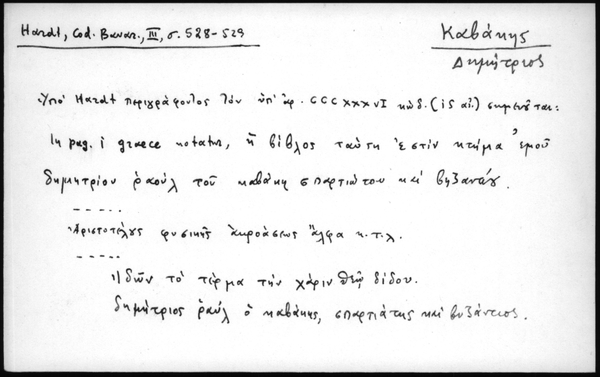 Hardt, Cod. Bavar., III, σ. 528-529
Καβάκης
Δημήτριος
Ὑπὸ Hardt περιγράφοντος τὸν ὑπ' ἀρ. CCCXXXVI κώδ. (ις αἰ.) σημειοῦται:
In pag. i graece notatur, ἡ βίβλος ταύτη ἐστὶν κτῆμα ἐμοῦ
δημητρίου ῥαοὺλ τοῦ καβάκη σπαρτιώτου καὶ βυζαντίου.
Ἀριστοτέλους φυσικῆς ἀκροάσεως ἄλφα κ.τ.λ.
ἰδὼν τὸ τέρμα τὴν χάριν θεῷ δίδου.
δημήτριος ῥαοὺλ ὁ καβάκης, σπαρτιάτης καὶ βυζάντιος.